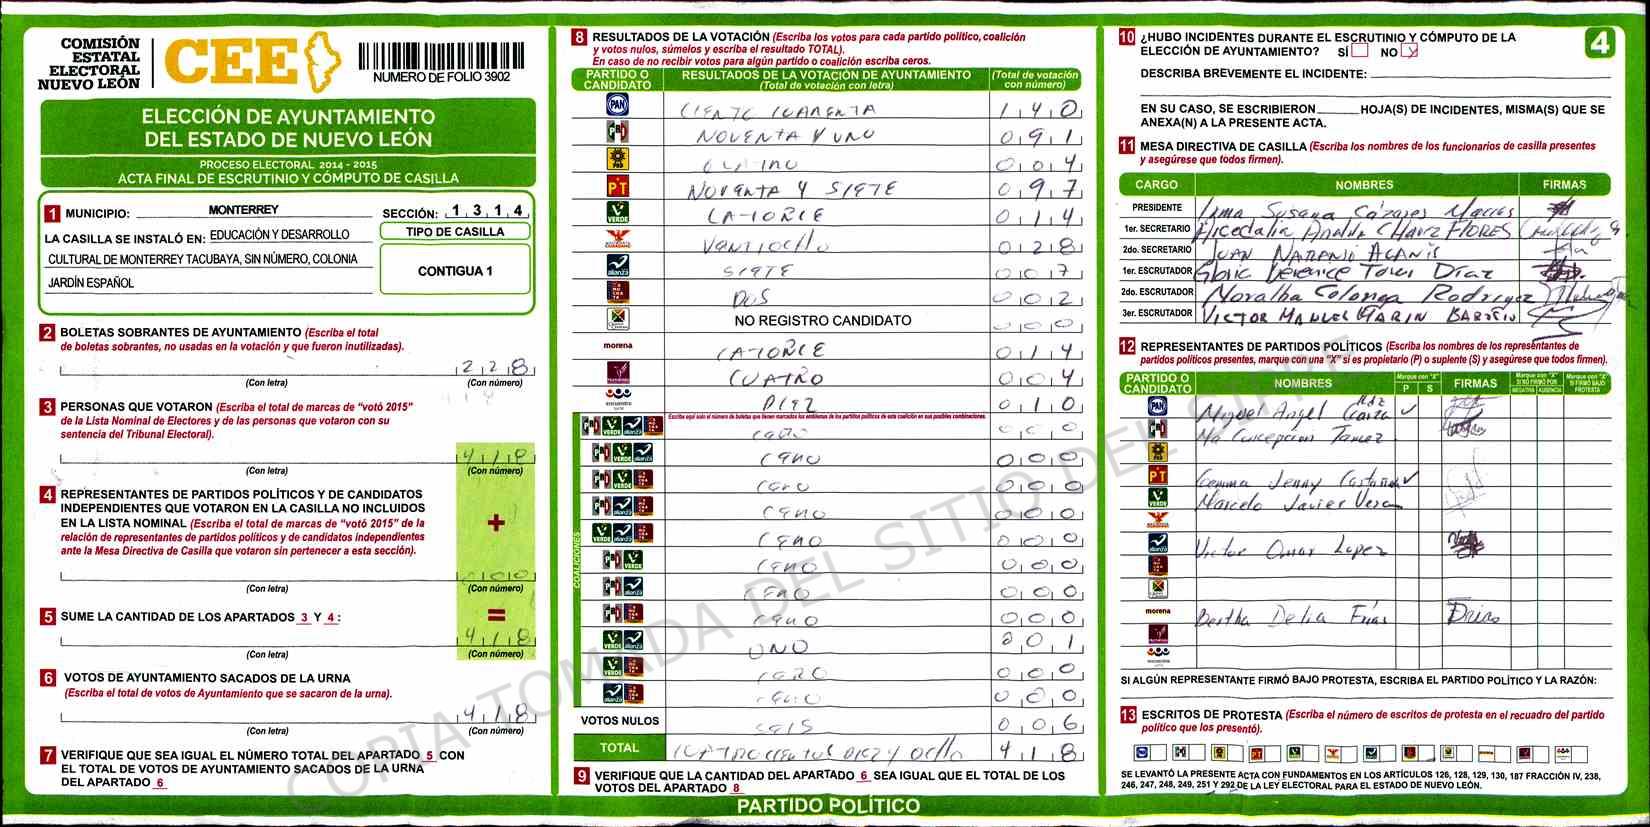 COMISIÓN
ESTATAL
ELECTORAL
NUEVO LEÓN
CEE
NUMERO DE FOLIO 3902
ELECCIÓN DE AYUNTAMIENTO
DEL ESTADO DE NUEVO LEÓN
PROCESO ELECTORAL 2014 - 2015
ACTA FINAL DE ESCRUTINIO Y CÓMPUTO DE CASILLA
1 MUNICIPIO: MONTERREY SECCIÓN: 1 3 1 4
LA CASILLA SE INSTALÓ EN: EDUCACIÓN Y DESARROLLO
CULTURAL DE MONTERREY TACUBAYA, SIN NÚMERO, COLONIA
JARDÍN ESPAÑOL
TIPO DE CASILLA
CONTIGUA 1
2 BOLETAS SOBRANTES DE AYUNTAMIENTO (Escriba el total
de boletas sobrantes, no usadas en la votación y que fueron inutilizadas).
2 2 8
(Con letra) (Con número)
3 PERSONAS QUE VOTARON (Escriba el total de marcas de "votó 2015"
de la Lista Nominal de Electores y de las personas que votaron con su
sentencia del Tribunal Electoral).
4 1 8
(Con letra) (Con número)
4 REPRESENTANTES DE PARTIDOS POLÍTICOS Y DE CANDIDATOS
INDEPENDIENTES QUE VOTARON EN LA CASILLA NO INCLUIDOS
EN LA LISTA NOMINAL (Escriba el total de marcas de "votó 2015" de la
relación de representantes de partidos políticos y de candidatos independientes
ante la Mesa Directiva de Casilla que votaron sin pertenecer a esta sección).
+
0 0 0
(Con letra) (Con número)
=
5 SUME LA CANTIDAD DE LOS APARTADOS 3 Y 4:
4 1 8
(Con letra) (Con número)
6 VOTOS DE AYUNTAMIENTO SACADOS DE LA URNA
(Escriba el total de votos de Ayuntamiento que se sacaron de la urna).
4 1 8
(Con letra) (Con número)
7 VERIFIQUE QUE SEA IGUAL EL NÚMERO TOTAL DEL APARTADO 5 CON
EL TOTAL DE VOTOS DE AYUNTAMIENTO SACADOS DE LA URNA
DEL APARTADO 6
8 RESULTADOS DE LA VOTACIÓN (Escriba los votos para cada partido político, coalición
y votos nulos, súmelos y escriba el resultado TOTAL).
En caso de no recibir votos para algún partido o coalición escriba ceros.
PARTIDO O CANDIDATO RESULTADOS DE LA VOTACIÓN DE AYUNTAMIENTO (Total de votación con letra) (Total de votación con número)
PAN CIENTO CUARENTA 1 4 0
PRI NOVENTA Y UNO 0 9 1
PRD CUATRO 0 0 4
PT NOVENTA Y SIETE 0 9 7
VERDE CATORCE 0 1 4
VEINTIOCHO 0 2 8
alianza SIETE 0 0 7
DOS 0 0 2
NO REGISTRO CANDIDATO 0 0 0
morena CATORCE 0 1 4
CUATRO 0 0 4
encuentro DIEZ 0 1 0
COALICIONES
Escriba aquí solo el número de boletas que tienen marcados los emblemas de los partidos políticos de esta coalición en sus posibles combinaciones.
CERO 0 0 0
CERO 0 0 0
CERO 0 0 0
CERO 0 0 0
CERO 0 0 0
CERO 0 0 0
CERO 0 0 0
CERO 0 0 0
UNO 0 0 1
CERO 0 0 0
CERO 0 0 0
VOTOS NULOS SEIS 0 0 6
TOTAL CUATROCIENTOS DIEZ Y OCHO 4 1 8
9 VERIFIQUE QUE LA CANTIDAD DEL APARTADO 6 SEA IGUAL QUE EL TOTAL DE LOS
VOTOS DEL APARTADO 8
PARTIDO POLÍTICO
10 ¿HUBO INCIDENTES DURANTE EL ESCRUTINIO Y CÓMPUTO DE LA
ELECCIÓN DE AYUNTAMIENTO? SÍ NO X
4
DESCRIBA BREVEMENTE EL INCIDENTE:
EN SU CASO, SE ESCRIBIERON HOJA(S) DE INCIDENTES, MISMA(S) QUE SE
ANEXA(N) A LA PRESENTE ACTA.
11 MESA DIRECTIVA DE CASILLA (Escriba los nombres de los funcionarios de casilla presentes
y asegúrese que todos firmen).
CARGO NOMBRES FIRMAS
PRESIDENTE Irma Susana Cázares Macías
1er. SECRETARIO Anahí CHAVEZ FLORES
2do. SECRETARIO JUAN NARANJO ALANIS
1er. ESCRUTADOR Gloria Berenice Torres Díaz
2do. ESCRUTADOR Noralba Colunga Rodríguez
3er. ESCRUTADOR VICTOR MANUEL MARIN
12 REPRESENTANTES DE PARTIDOS POLÍTICOS (Escriba los nombres de los representantes de
partidos políticos presentes, marque con una "X" si es propietario (P) o suplente (S) y asegúrese que todos firmen).
PARTIDO O CANDIDATO NOMBRES Marque con "X" P S FIRMAS Marque con "X" SI NO FIRMÓ POR NEGATIVA AUSENCIA Marque con "X" SI FIRMÓ BAJO PROTESTA
PAN Miguel Angel Garza ✓
PRI Ma Concepcion Tamez
PRD
PT Gemma Jenny Castañeda ✓
VERDE Marcelo Javier Vera
alianza Victor Omar Lopez
morena Bertha Delia Frías Frias
SI ALGÚN REPRESENTANTE FIRMÓ BAJO PROTESTA, ESCRIBA EL PARTIDO POLÍTICO Y LA RAZÓN:
13 ESCRITOS DE PROTESTA (Escriba el número de escritos de protesta en el recuadro del partido
político que los presentó).
SE LEVANTÓ LA PRESENTE ACTA CON FUNDAMENTOS EN LOS ARTÍCULOS 126, 128, 129, 130, 187 FRACCIÓN IV, 238,
246, 247, 248, 249, 251 Y 292 DE LA LEY ELECTORAL PARA EL ESTADO DE NUEVO LEÓN.
COPIA TOMADA DEL SITIO DEL SIPRE